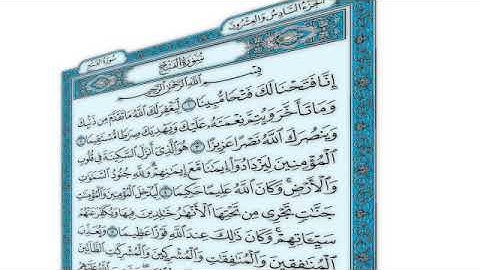 الجُزْءُ السَّادِسُ وَالعِشْرُونَ
سُورَةُ الفَتْحِ
سُورَةُ الفَتْحِ
بِسْمِ ٱللَّهِ ٱلرَّحْمَٰنِ ٱلرَّحِيمِ
إِنَّا فَتَحْنَا لَكَ فَتْحًا مُّبِينًا ١ لِّيَغْفِرَ لَكَ ٱللَّهُ مَا تَقَدَّمَ مِن ذَنۢبِكَ
وَمَا تَأَخَّرَ وَيُتِمَّ نِعْمَتَهُۥ عَلَيْكَ وَيَهْدِيَكَ صِرَٰطًا مُّسْتَقِيمًا ٢
وَيَنصُرَكَ ٱللَّهُ نَصْرًا عَزِيزًا ٣ هُوَ ٱلَّذِىٓ أَنزَلَ ٱلسَّكِينَةَ فِى قُلُوبِ
ٱلْمُؤْمِنِينَ لِيَزْدَادُوٓا۟ إِيمَٰنًا مَّعَ إِيمَٰنِهِمْ وَلِلَّهِ جُنُودُ ٱلسَّمَٰوَٰتِ
وَٱلْأَرْضِ وَكَانَ ٱللَّهُ عَلِيمًا حَكِيمًا ٤ لِّيُدْخِلَ ٱلْمُؤْمِنِينَ وَٱلْمُؤْمِنَٰتِ
جَنَّٰتٍ تَجْرِى مِن تَحْتِهَا ٱلْأَنْهَٰرُ خَٰلِدِينَ فِيهَا وَيُكَفِّرَ عَنْهُمْ
سَيِّـَٔاتِهِمْ وَكَانَ ذَٰلِكَ عِندَ ٱللَّهِ فَوْزًا عَظِيمًا ٥ وَيُعَذِّبَ
ٱلْمُنَٰفِقِينَ وَٱلْمُنَٰفِقَٰتِ وَٱلْمُشْرِكِينَ وَٱلْمُشْرِكَٰتِ ٱلظَّآنِّينَ